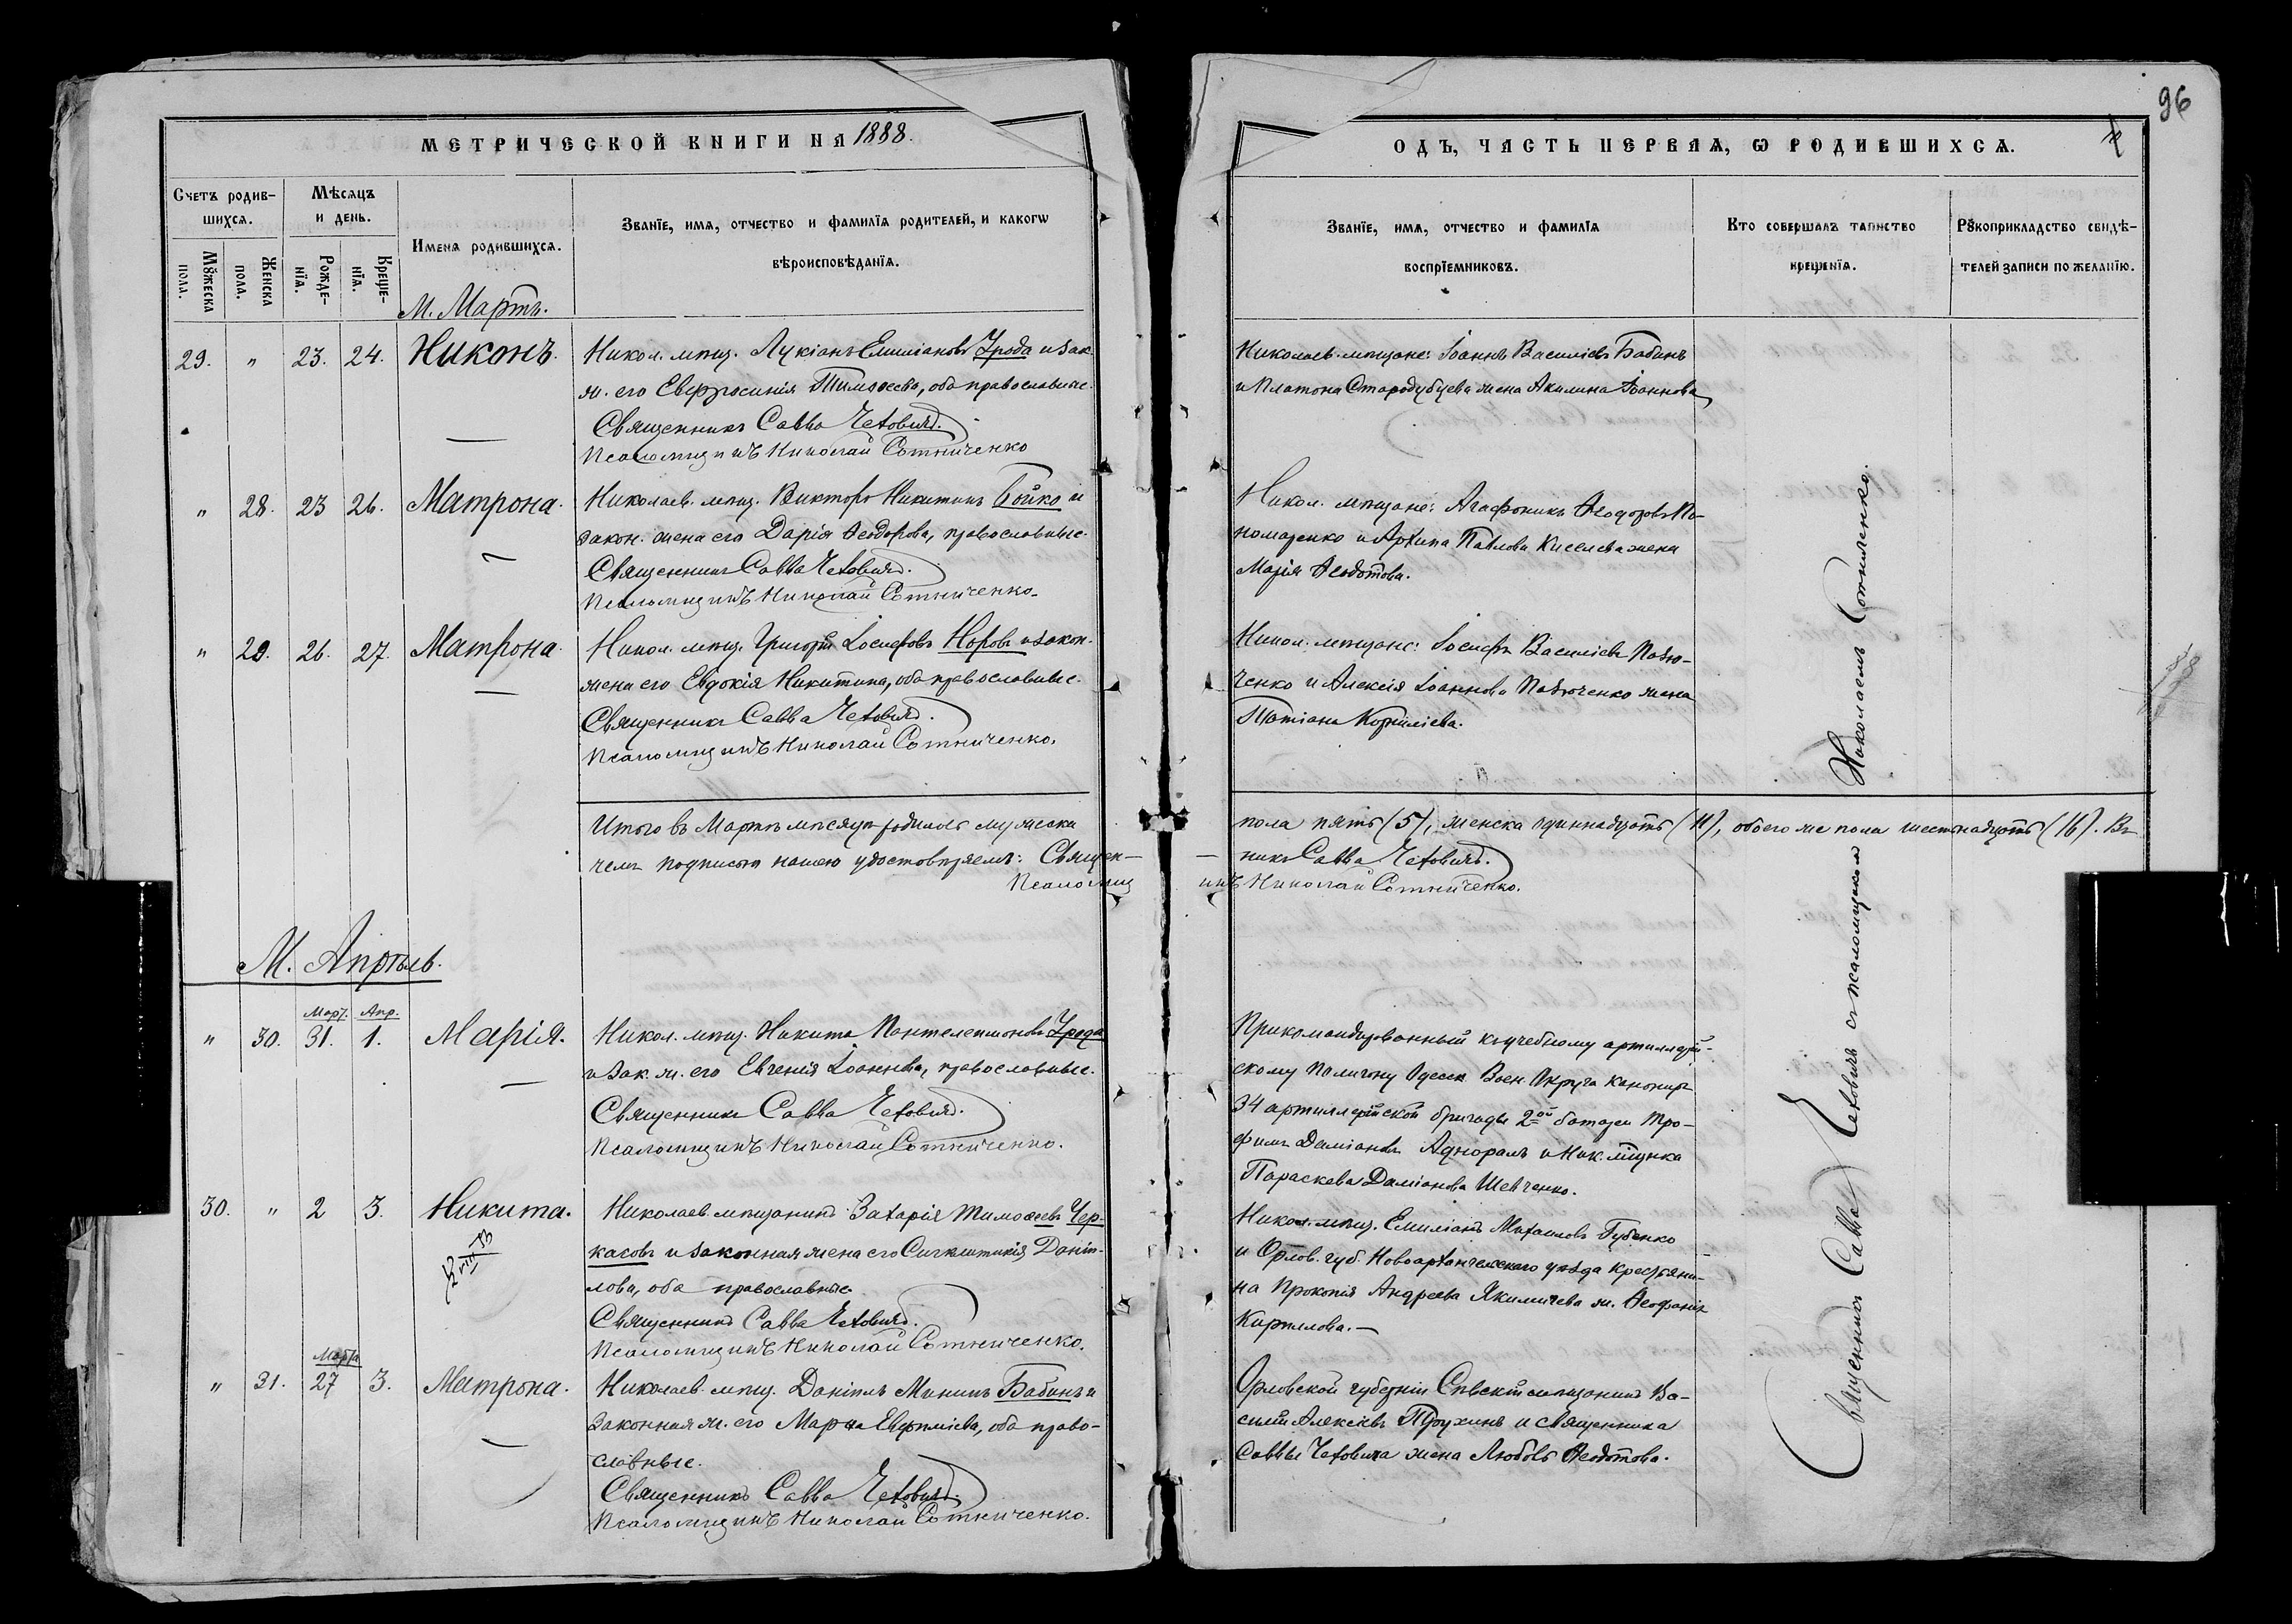 96
МЕТРИЧЕСКОЙ КНИГИ НА 1888.
ОДЪ, ЧАСТЬ ПЕРВАЯ, Ѡ РОДИВШИХСЯ.
Счетъ родив-
шихся.
Мѣсяцъ
и день.
Имена родившихся.
Званїе, имя, отчество и фамилїя родителей, и какогѡ
вѣроисповѣданїя.
Мꙋжеска
пола.
Женска
пола.
Рожде-
нїя.
Креще-
нїя.
Званїе, имя, отчество и фамилїя
воспрїемниковъ.
Кто совершалъ таинство
крещенїя.
Рꙋкоприкладство свидѣ-
телей записи по желанїю.
М. Мартъ.
29. " 23. 24. Никонъ. Никол. мѣщ. Лукіанъ Емиліановъ Урода и зак.
ж. его Евфросинія Тимоѳеева, оба православные.
Священникъ Савва Чехович.
Псаломщикъ Николай Сотниченко
Николаев. мѣщане: Іоаннъ Василіевъ Бабинъ
и Платона Стародубцева жена Акилина Іоаннова
" 28. 23 26. Матрона. Николаев. мѣщ. Викторъ Никитинъ Бойко и
закон. жена его Дарія Ѳеодорова, православные.
Священникъ Савва Чехович.
Псаломщикъ Николай Сотниченко.
Никол. мѣщане: Агафоникъ Ѳеодоровъ По-
номаренко и Архипа Павлова Киселева жена
Марія Ѳеодотова.
" 29. 26. 27. Матрона. Никол. мѣщ. Григорій Іосифовъ Норовъ и закон.
жена его Евдокія Никитина, оба православные.
Священникъ Савва Чехович.
Псаломщикъ Николай Сотниченко.
Никол. мѣщане: Іосифъ Василіевъ
и Алексія Іоаннова жена
Татіана Корниліева.
Итого въ Мартѣ мѣсяцѣ родилось мужеска
пола пять (5), женска одиннадцать (11), обоего же пола шестнадцать (16). Въ
чемъ подписью нашею удостовѣряемъ: Священ-
никъ Савва Чехович.
Псаломщ
икъ Николай Сотниченко.
М. Апрѣль.
Март. Апр.
" 30. 31. 1. Марія. Никол. мѣщ. Никита Пантелеимоновъ Урода
и зак. ж. его Евгенія Іоаннова, православные.
Священникъ Савва Чехович.
Псаломщикъ Николай Сотниченко.
Прикомандированный къ учебному артиллерій-
скому полигону Одесск. Воен. Округа канониръ
34 артиллерійской бригады 2ой батареи Тро-
фимъ Даміановъ и Ник. мѣщнка
Параскева Даміанова Шевченко.
30. " 2 3. Никита. Николаев. мѣщанинъ Захарія Тимоѳеевъ Чер-
касовъ и законная жена его Синклитикія Даніи-
лова, оба православные.
Священникъ Савва Чехович.
Псаломщикъ Николай Сотниченко.
Никол. мѣщ. Емиліанъ Михаиловъ Губенко
и Орлов. губ. уѣзда крестьяни-
на Прокопія Андреева Якимичева ж. Ѳеофанія
Кириллова.—
Марта
" 31. 27 3. Матрона. Николаев. мѣщ. Даніилъ Мининъ Бабинъ и
законная ж. его Марѳа Евфиміева, оба право-
славные.
Священникъ Савва Чехович.
Псаломщикъ Николай Сотниченко.
Орловской губерніи Сѣвскій мѣщанинъ Ва-
силій Алексіевъ и священника
Саввы Чеховича жена Любовь Ѳеодотова.
Священникъ Савва Чеховичъ съ псаломщикомъ
Николаемъ Сотниченко.